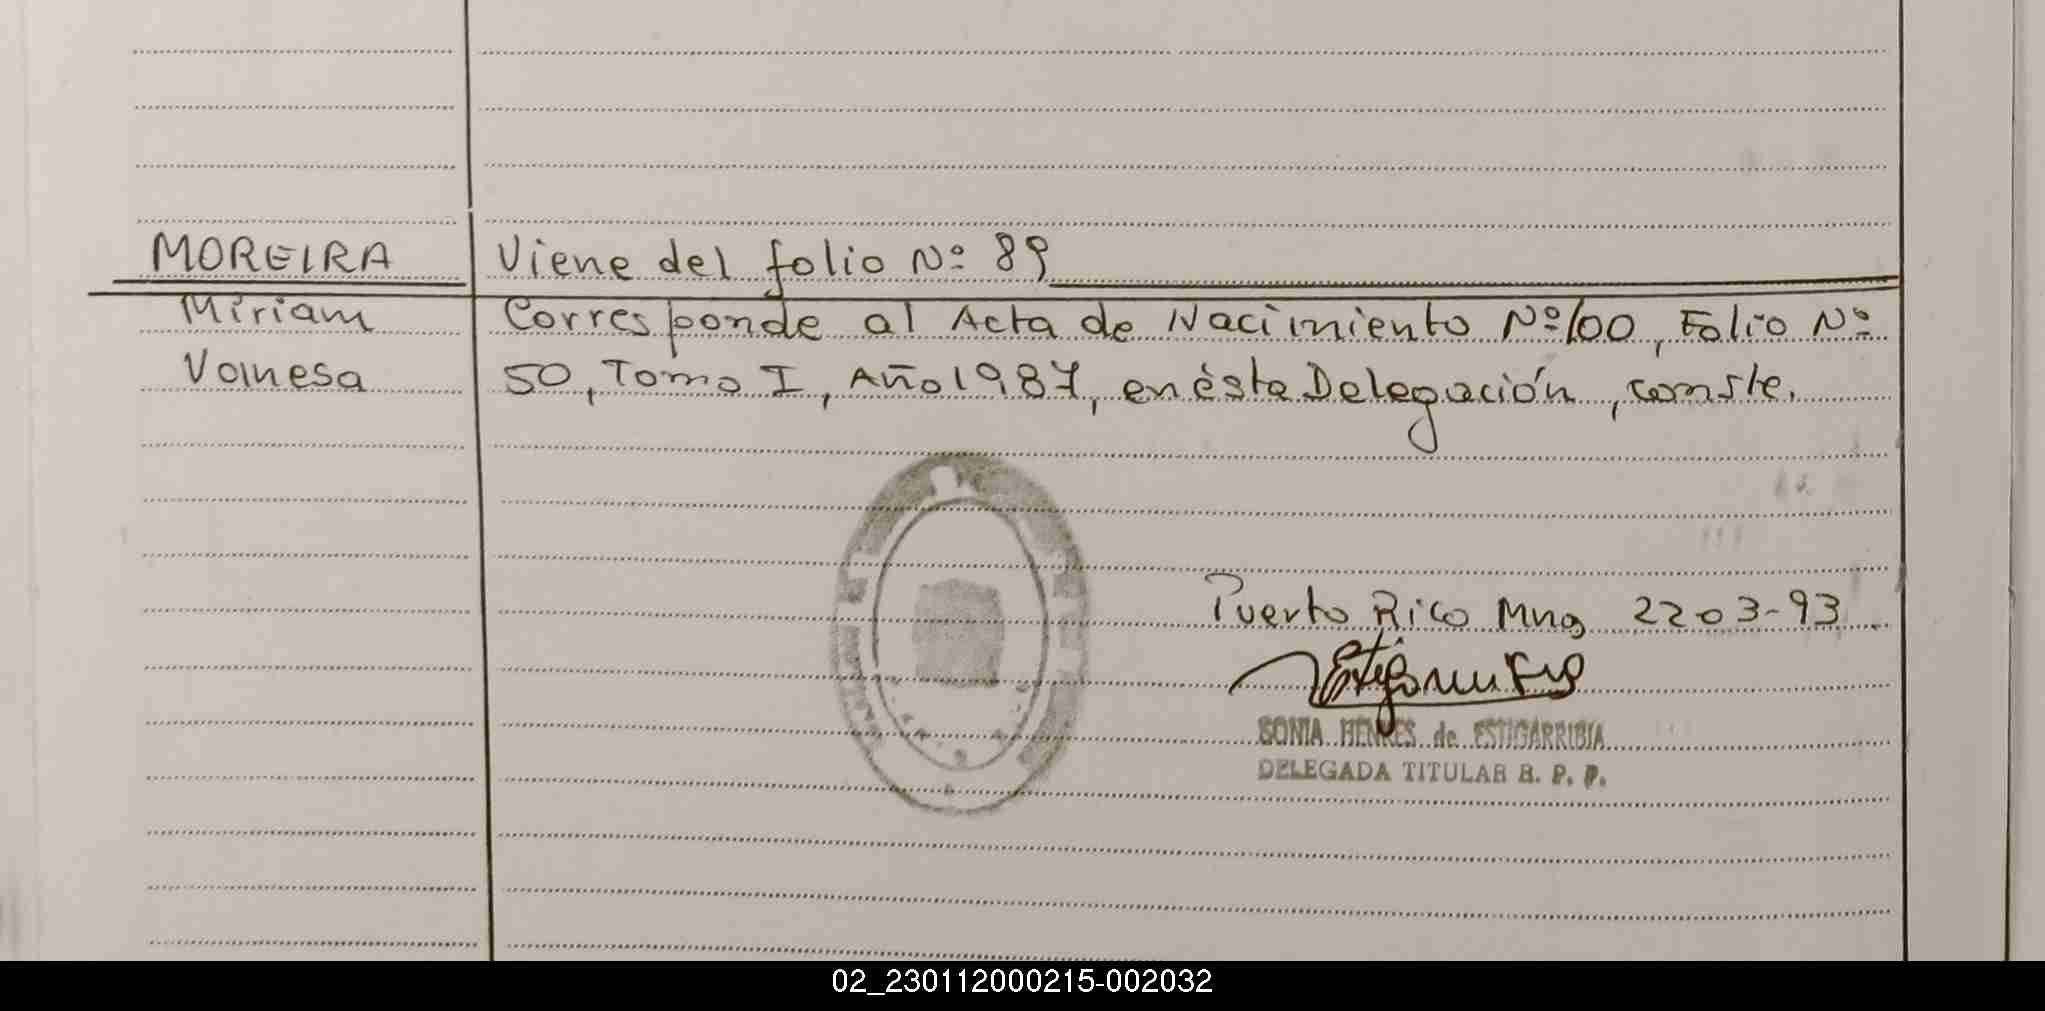 MOREIRA Viene del folio Nº 89
Miriam Corresponde al Acta de Nacimiento Nº 100, Folio Nº
Vanesa 50, Tomo I, Año 1987, en ésta Delegación, conste.
Puerto Rico Mnes 22-03-93
SONIA HENKES de ESTIGARRIBIA
DELEGADA TITULAR R. P. P.
02_230112000215-002032